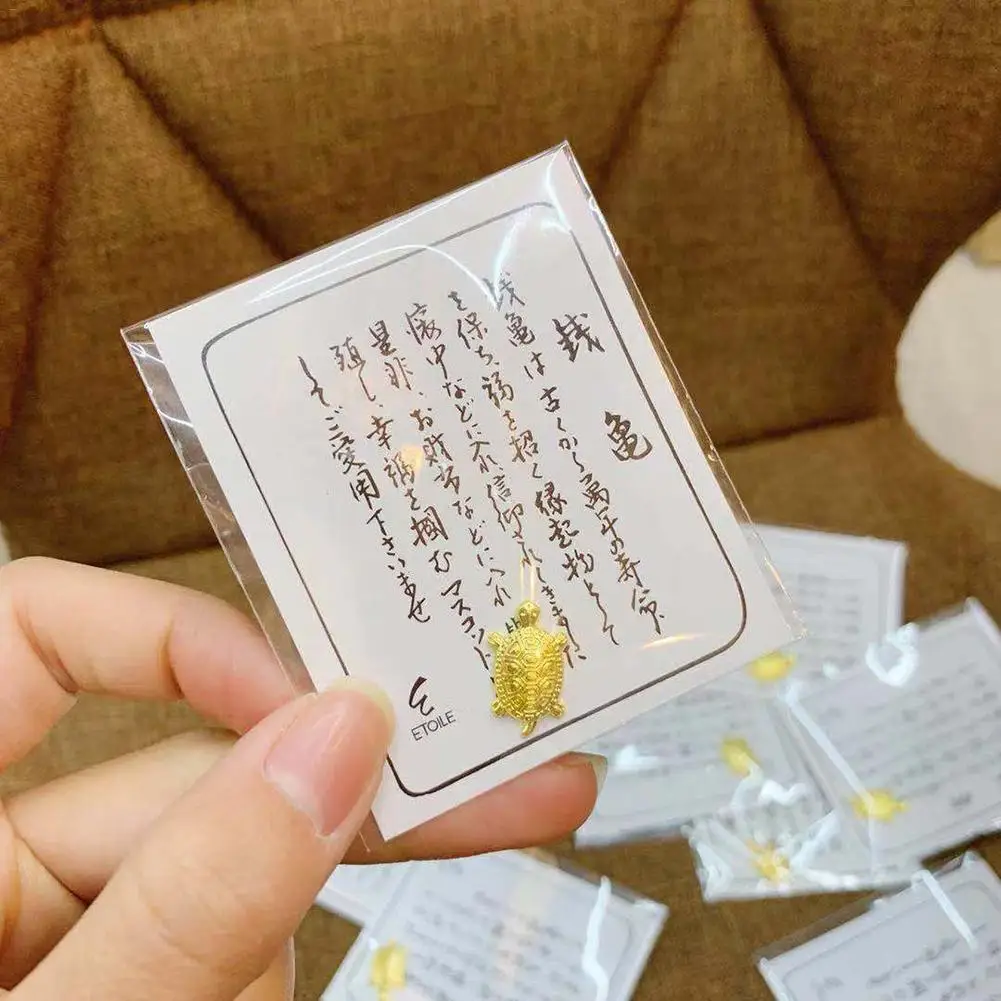 銭亀
銭亀は古くから萬年の寿命
を保ち、福を招く縁起物として
懐中などに入れ、信仰されてきました
是非、お財布などに入れ
殖し、幸福を掴むマスコット
してご愛用下さいませ
ETOILE